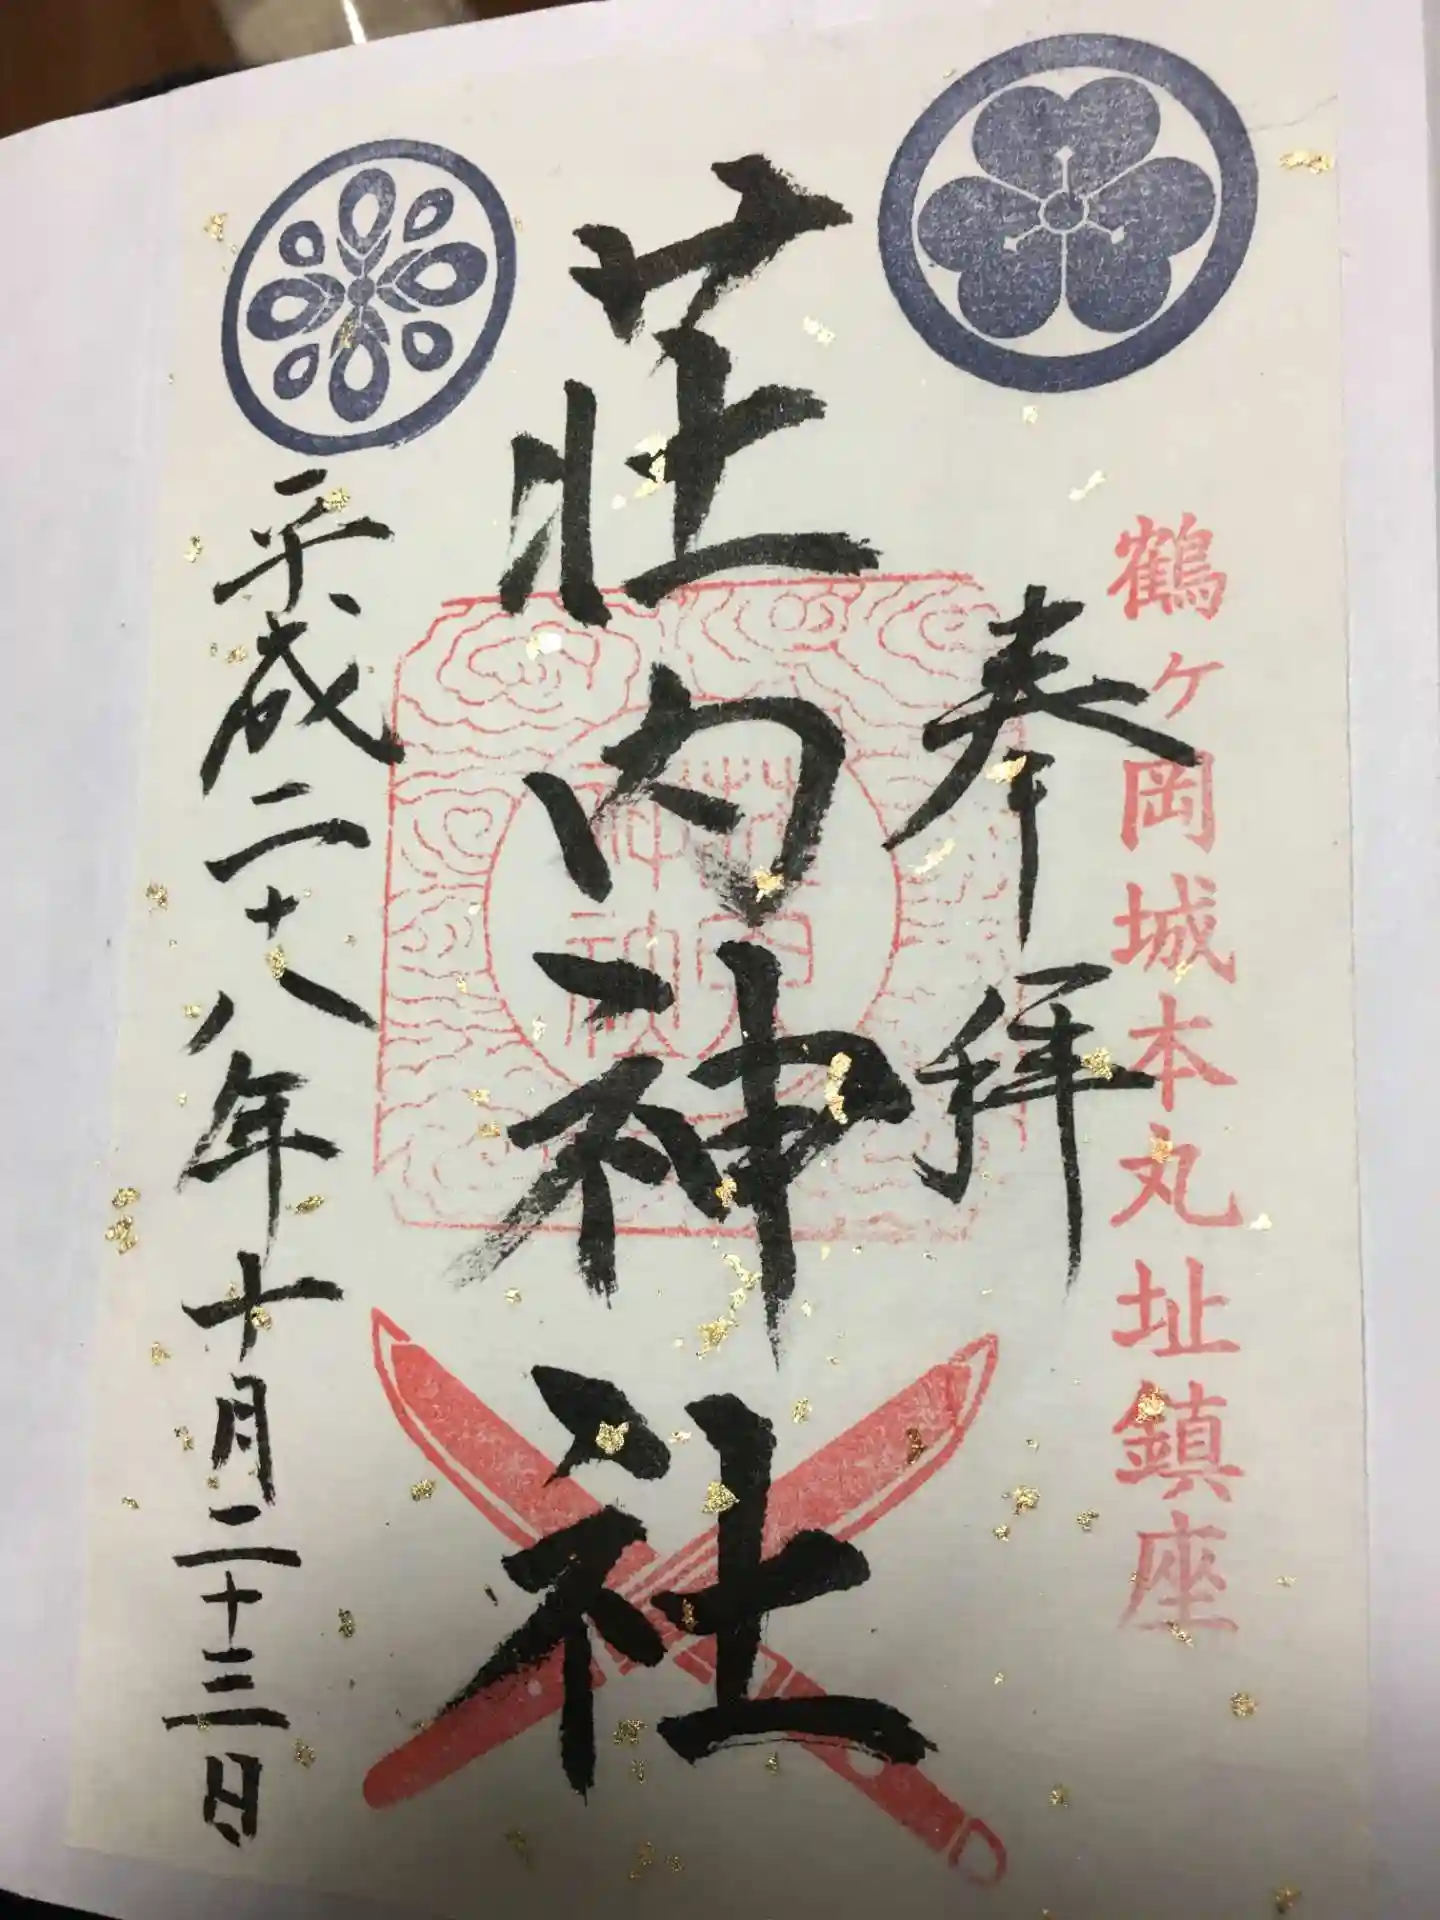 鶴ヶ岡城本丸址鎮座
奉拝
荘内神社
荘内神社
平成二十八年十月二十三日